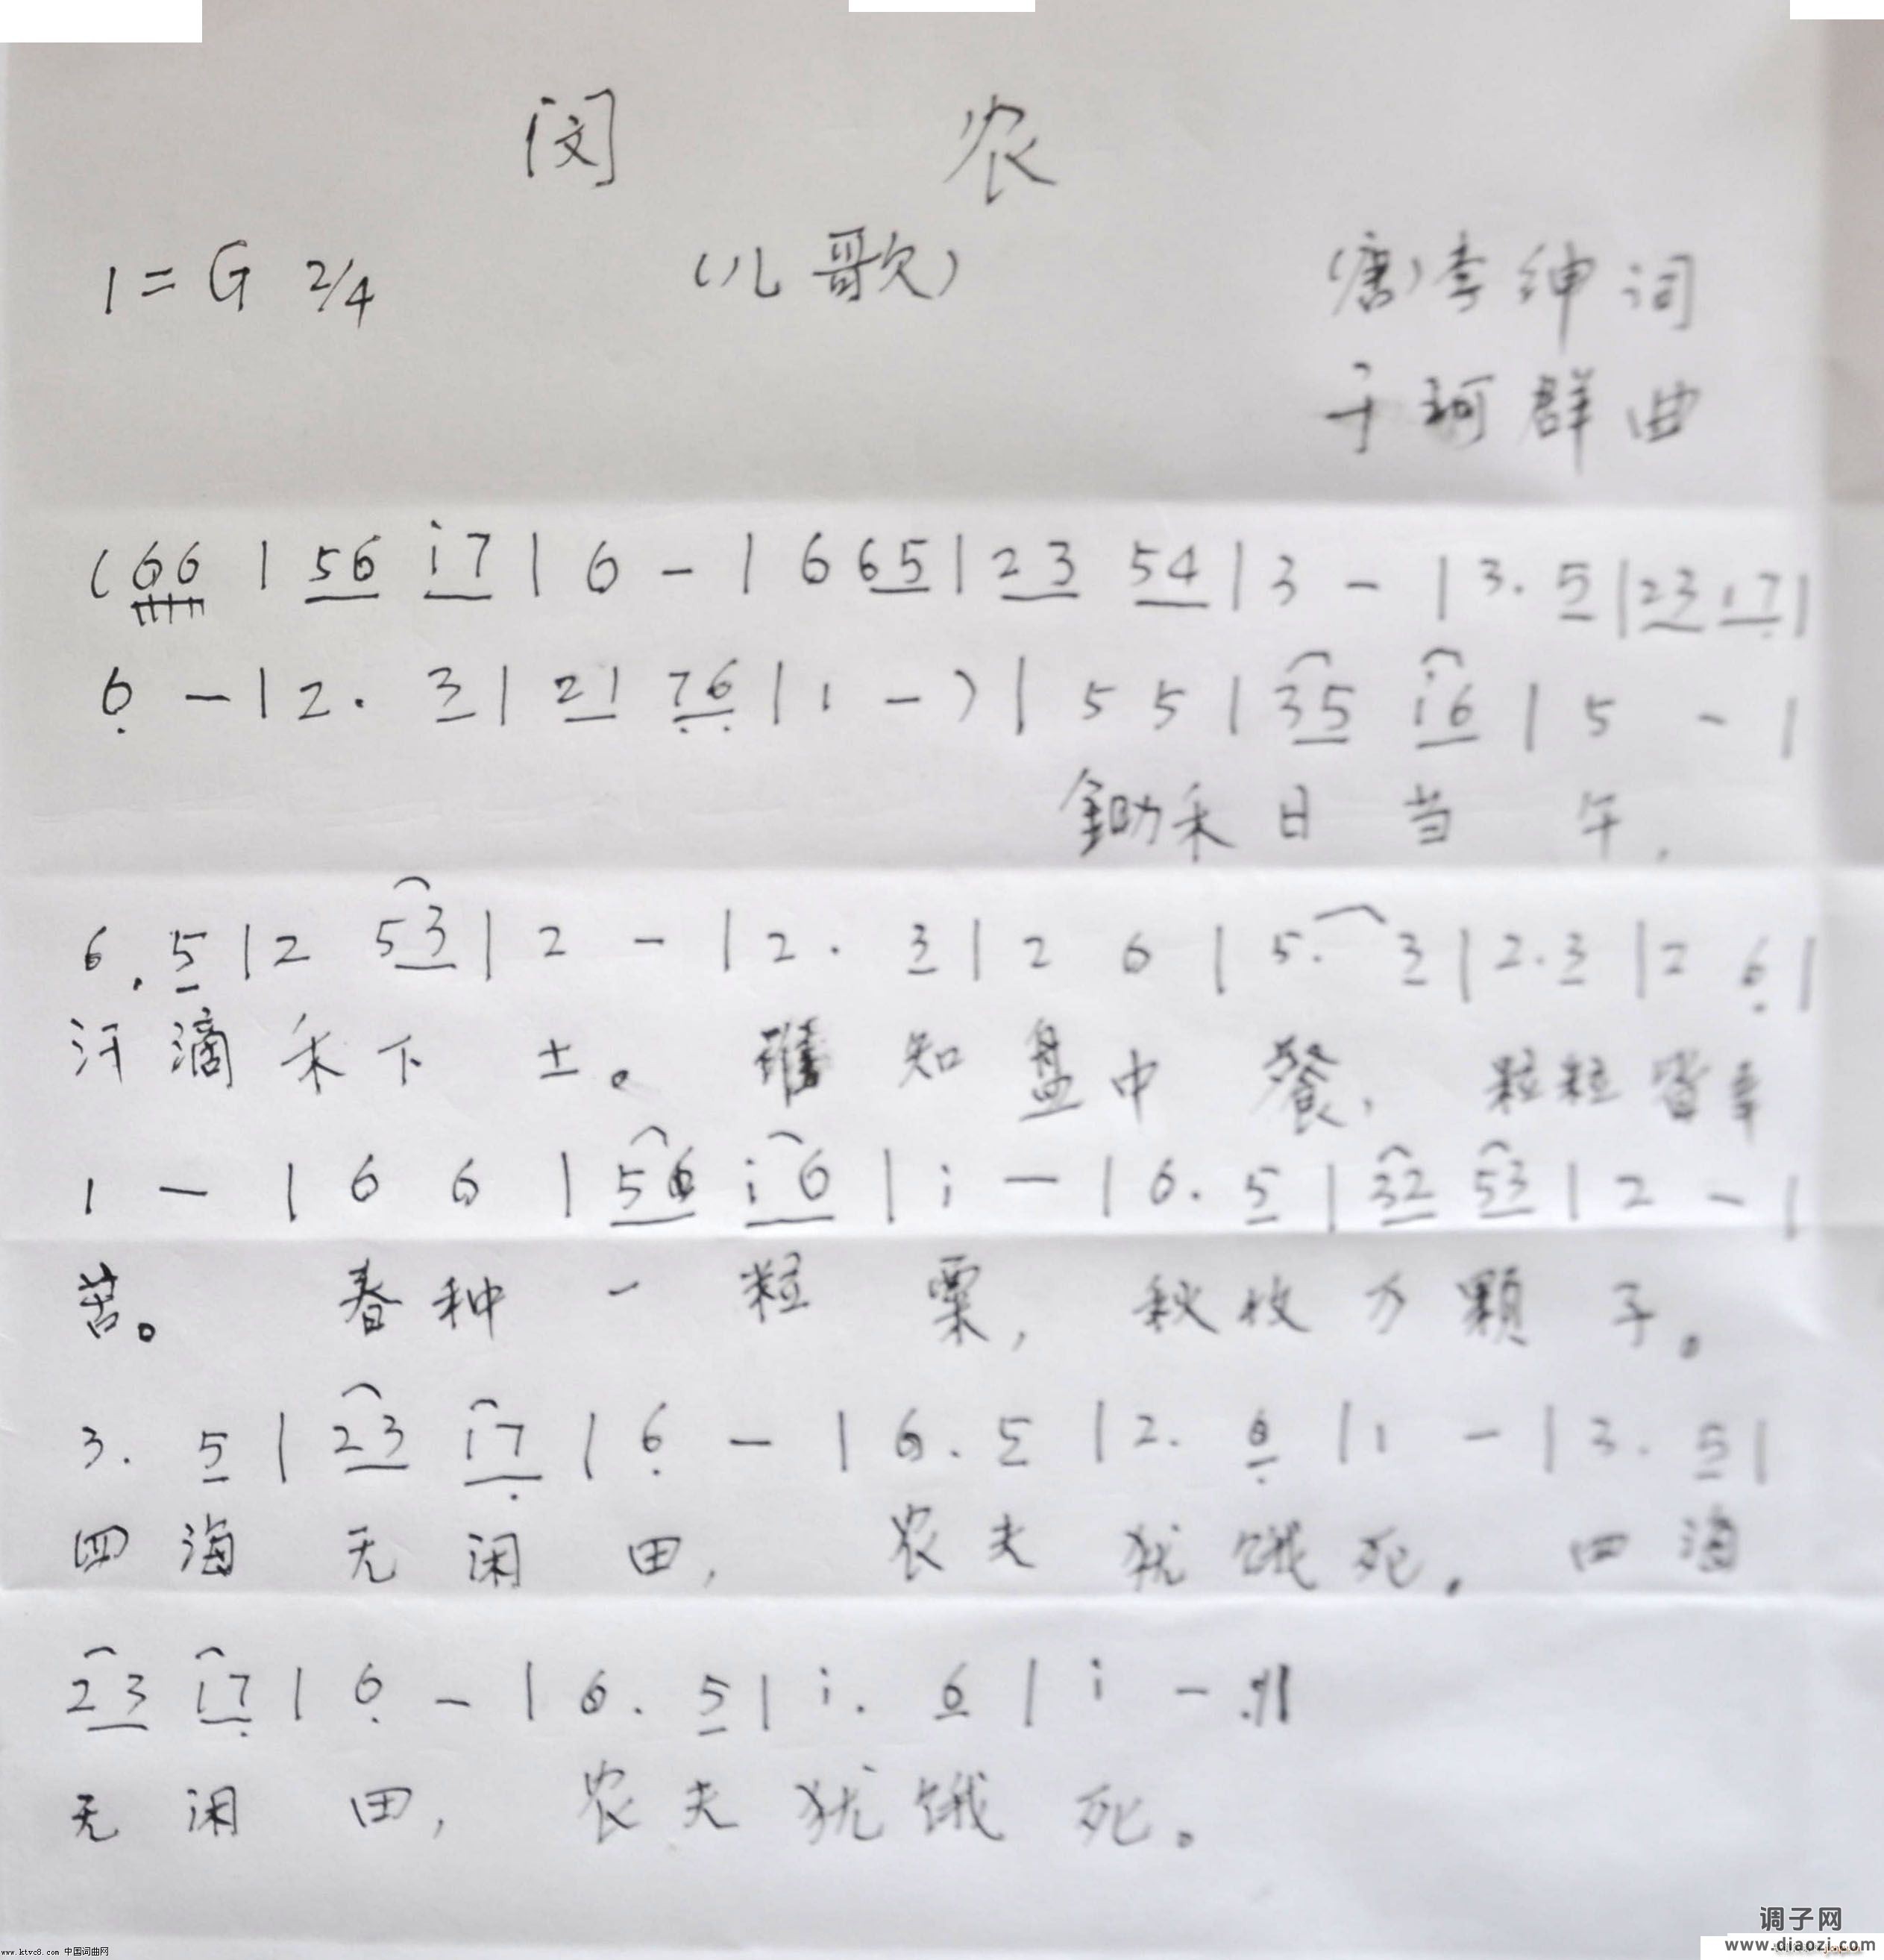 闵 农
1=G 2/4 (儿歌) (唐)李绅词
于珂群曲
(66 | 56 i7 | 6 - | 6 65 | 23 54 | 3 - | 3. 5 | 23 17 |
6 - | 2. 3 | 21 76 | 1 - ) | 5 5 | 35 i6 | 5 - |
鋤禾日当午,
6. 5 | 2 53 | 2 - | 2. 3 | 2 6 | 5. 3 | 2. 3 | 2 6 |
汗滴禾下土。 谁知盘中餐, 粒粒皆辛
1 - | 6 6 | 56 i6 | i - | 6. 5 | 32 53 | 2 - |
苦。 春种一粒粟, 秋收万颗子。
3. 5 | 23 17 | 6 - | 6. 5 | 2. 6 | 1 - | 3. 5 |
四海无闲田, 农夫犹饿死。 四海
23 17 | 6 - | 6. 5 | i. 6 | i - ||
无闲田, 农夫犹饿死。
调子网
www.diaozi.com
www.ktvc8.com 中国词曲网